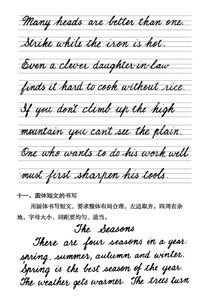 Many heads are better than one.
Strike while the iron is hot.
Even a clever daughter-in-law
finds it hard to cook without rice.
If you don't climb up the high
mountain you can't see the plain.
One who wants to do his work well
must first sharpen his tools.
十一、圆体短文的书写
用圆体书写短文，要求整体布局合理，左边取齐，四周有余
地，字母大小、词距要均匀、适当。
The Seasons
There are four seasons in a year:
spring, summer, autumn and winter.
Spring is the best season of the year.
The weather gets warmer. The trees turn